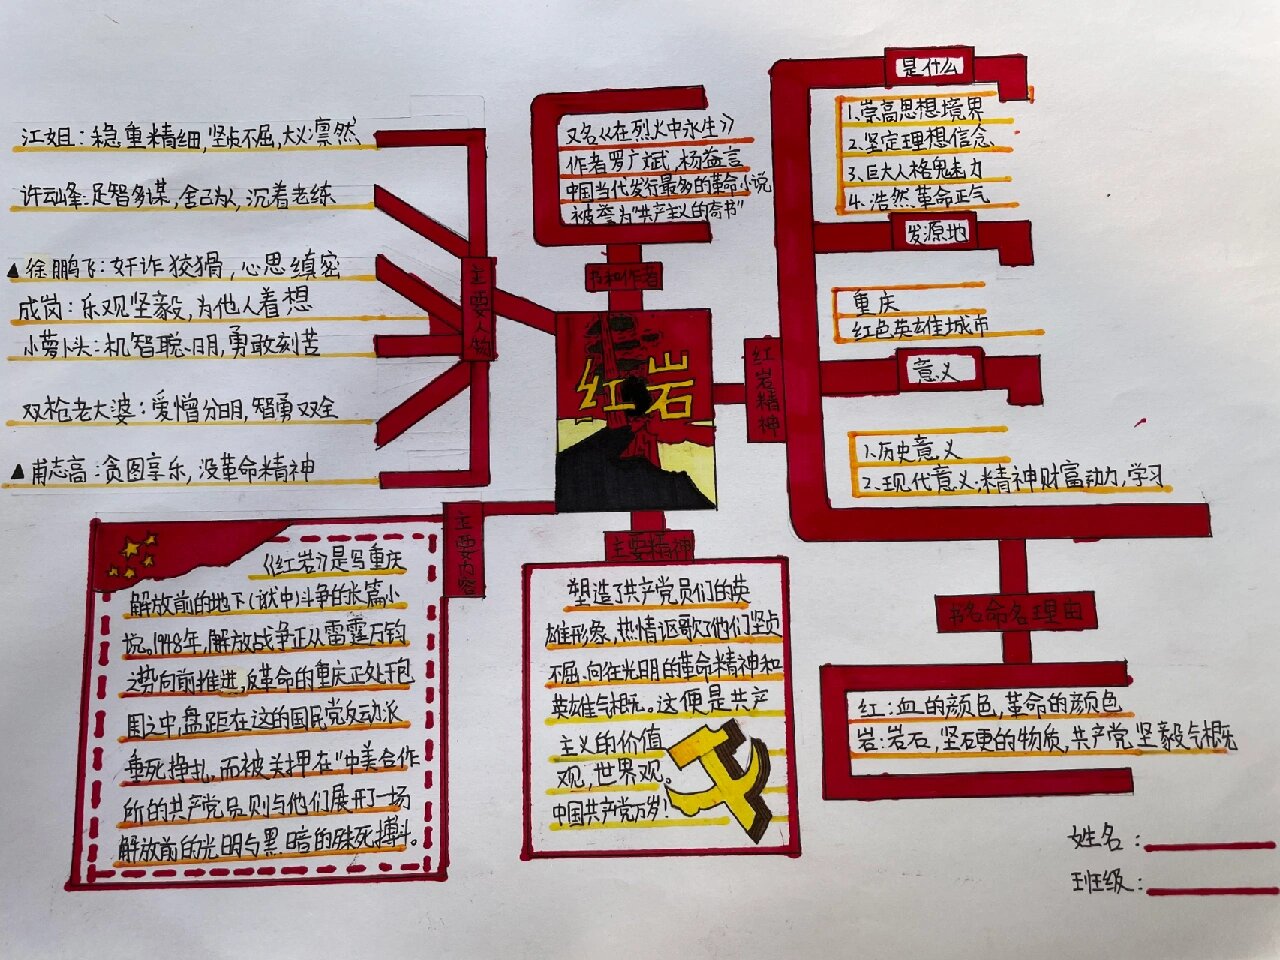 江姐：稳重精细，坚贞不屈，大义凛然
许云峰：足智多谋，舍己为人，沉着老练
▲徐鹏飞：奸诈狡猾，心思缜密
成岗：乐观坚毅，为他人着想
小萝卜头：机智聪明，勇敢刻苦
双枪老大婆：爱憎分明，智勇双全
▲甫志高：贪图享乐，没革命精神
主要人物
又名《在烈火中永生》
作者罗广斌，杨益言
中国当代发行最多的革命小说
被誉为“共产主义的奇书”
书和作者
红岩
红岩精神
是什么
1.崇高思想境界
2.坚定理想信念
3.巨大人格魅力
4.浩然革命正气
发源地
重庆
红色英雄城市
意义
1.历史意义
2.现代意义：精神财富动力，学习
主要内容
《红岩》是写重庆
解放前的地下（狱中）斗争的长篇小
说。1948年，解放战争正从雷霆万钧
之势向前推进，反革命的重庆正处于包
围之中，盘距在这的国民党反动派
垂死挣扎，而被关押在“中美合作
所的共产党员则与他们展开了一场
解放前的光明与黑暗的殊死搏斗。
主要精神
塑造了共产党员们的英
雄形象，热情讴歌了他们坚贞
不屈、向往光明的革命精神和
英雄气概。这便是共产
主义的价值
观，世界观。
中国共产党万岁！
书名命名理由
红：血的颜色，革命的颜色
岩：岩石，坚硬的物质，共产党坚毅气概
姓名：
班级：